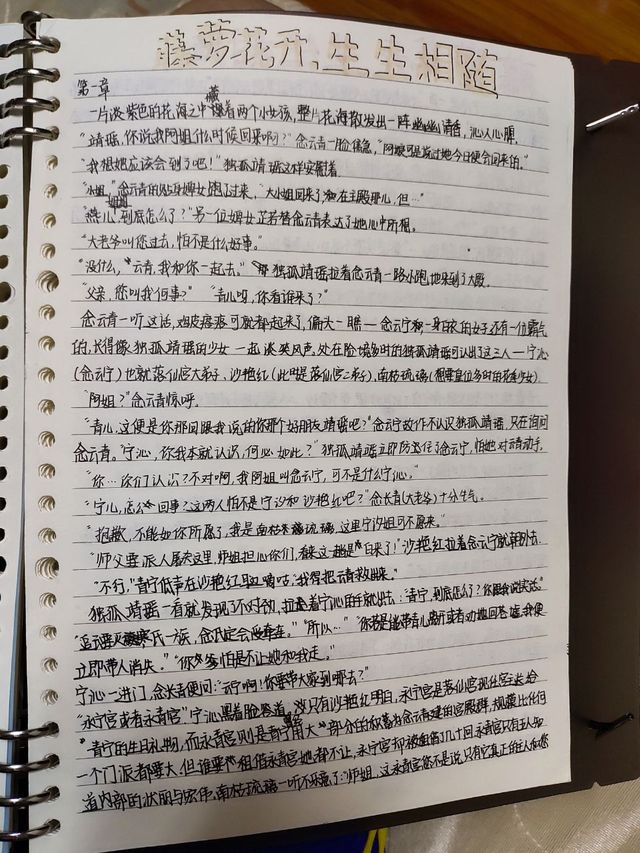 藤萝花开,生生相随
第一章
一片淡紫色的花海之中藏着两个小女孩,整片花海散发出一阵幽幽清香,沁人心脾。
“靖瑶,你说我阿姐什么时候回来啊?”念云青一脸着急,“阿娘可是说过她今日便会回来的。”
“我想她应该会到了吧!”独孤靖瑶这样安慰着
“小姐,”念云青的贴身婢女跑了过来,“大小姐回来了,和在主殿那儿,但…”
到底怎么了?”另一位婢女芷若替念云青表达了她心中所想。
“大老爷叫您过去,怕不是什么好事。”
“没什么,”“云青,我和你一起去。”独孤靖瑶拉着念云青一路小跑地来到了大殿。
“父亲,您叫我何事?”“青儿呀,你看谁来了?”
念云青一听这话,鸡皮疙瘩可就都起来了,偏头一瞎一念云宁和一身白衣的女子还有一位霸气
的,长得像独孤靖瑶的少女一起谈笑风声,处在险境多时的独孤靖瑶可认出了这三人一宁沁
(念云宁)也就落仙宫大弟子,沙艳红(此时是落仙宫二弟子),南枯琉璃(想要皇位多时的花莲少女)
“阿姐?”念云青惊呼。
“青儿,这便是你那回跟我说的你那个好朋友靖瑶吧?”念云宁故作不认识独孤靖瑶,只在询问
念云青。“宁沁,你我本就认识,何必如此?”独孤靖瑶立即防住了念云宁,怕她对云青动手,
“你…你们认识?不对啊,我阿姐叫念云宁,可不是什么宁沁。”
“宁儿,怎么回事?这两人怕不是宁汐和沙艳红吧?”念长青(大老爷)十分生气。
“抱歉,不能如你所愿了,我是南枯琉璃,这里宁汐姐可不愿来。”
“师父要派人屠夫这里,师姐担心你们,看来这一趟是白来了!”沙艳红拉着念云宁就朝外去,
“不行,”青宁低声在沙艳红耳边嘀咕:“我得把云青救出来。”
独孤靖瑶一看就发现了不对劲,拉着宁沁的手就出去:“青宁,到底怎么了?你跟我说实话。”
氏一族,念氏定会”“所以…”“你若是带青儿离开或者劝她回宫,我便
立即带人消失。”“你怕是不让她和我走。”
宁沁一进门,念长青便问:“云宁啊!你要带大家到哪去?”
“永宁宫或者永青宫”宁沁黑着脸答道,只有沙艳红明白,永宁宫是落仙宫现任宫主给
青宁的生日礼物,而永青宫则是青宁用大部分的积蓄为念云青建的宫殿群,规模比任何
一个门派都要大,但谁要租借永青宫她都不让,永宁宫却被租借了几十回,永青宫只有主人知
道内部的状丽与宏伟,南枯琉璃一听不乐意了:“师姐,这永青宫您不是说只有它真正的主人和您